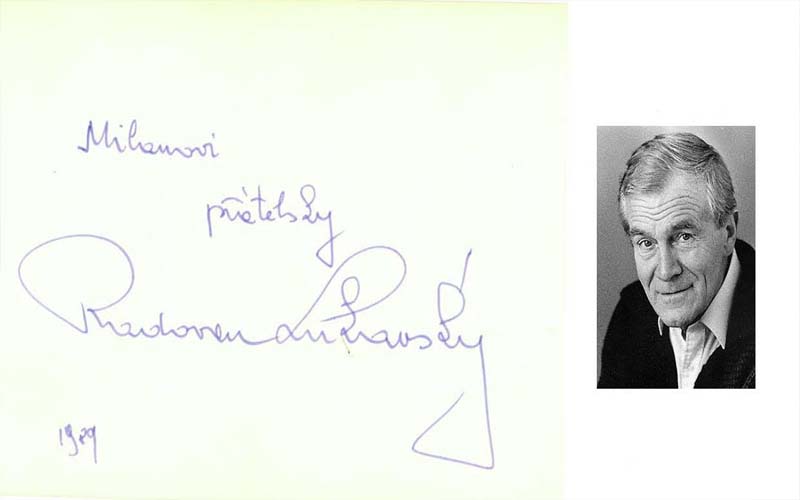 Milanovi
přátelsky
Radovan Lukavský
1989